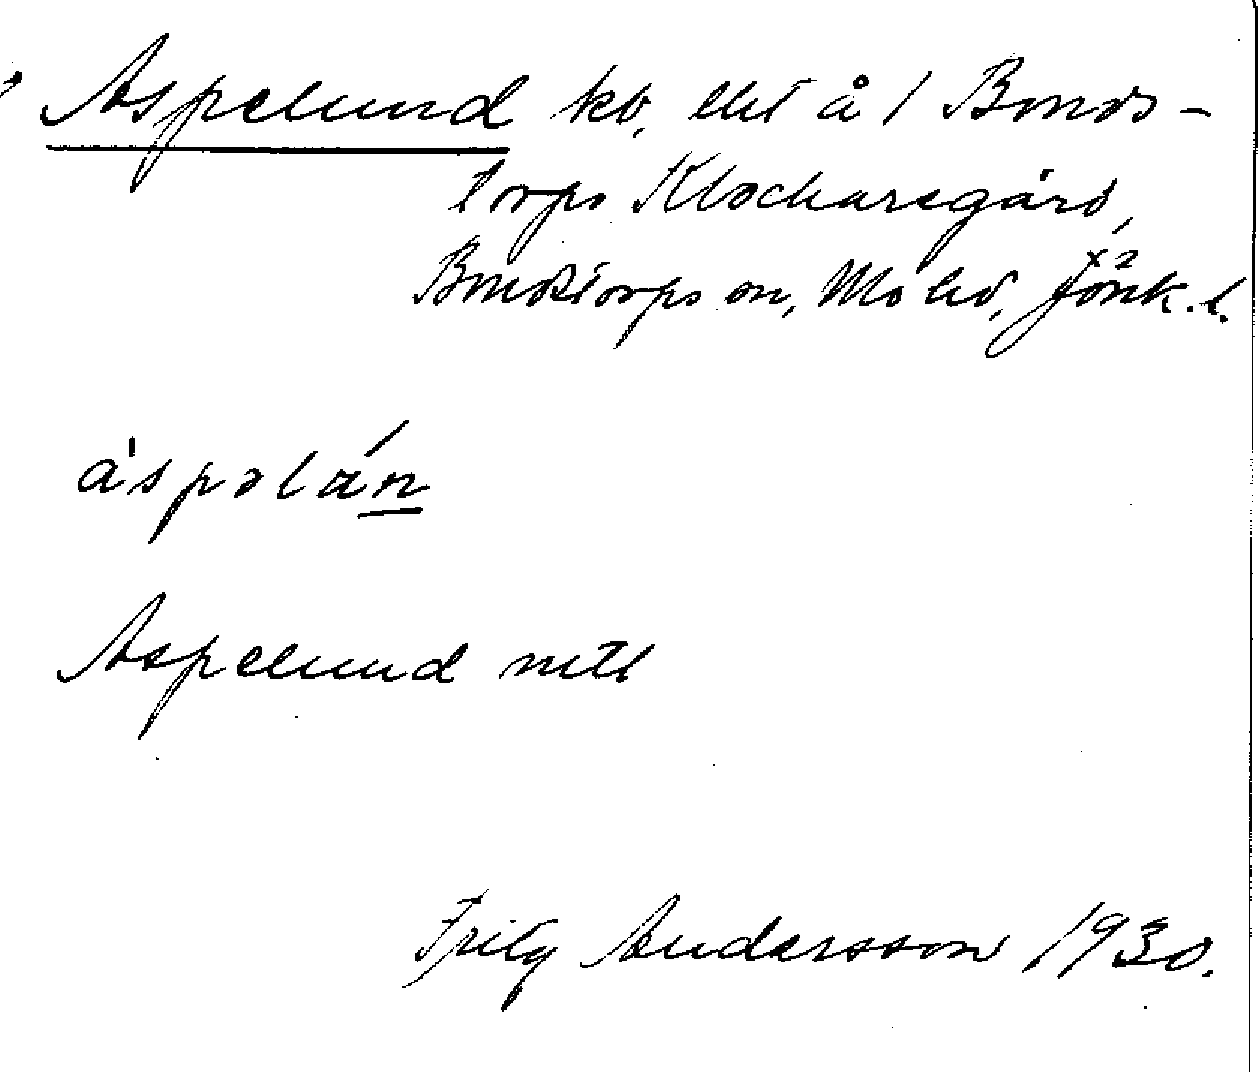 Aspelund kv. lht å 1 Bonds-
torps Klockaregård,
Bondstorps sn, Mo hd, Jönk. l.
x2
áspəlán
Aspelund mtl
Fritz Andersson 1930.